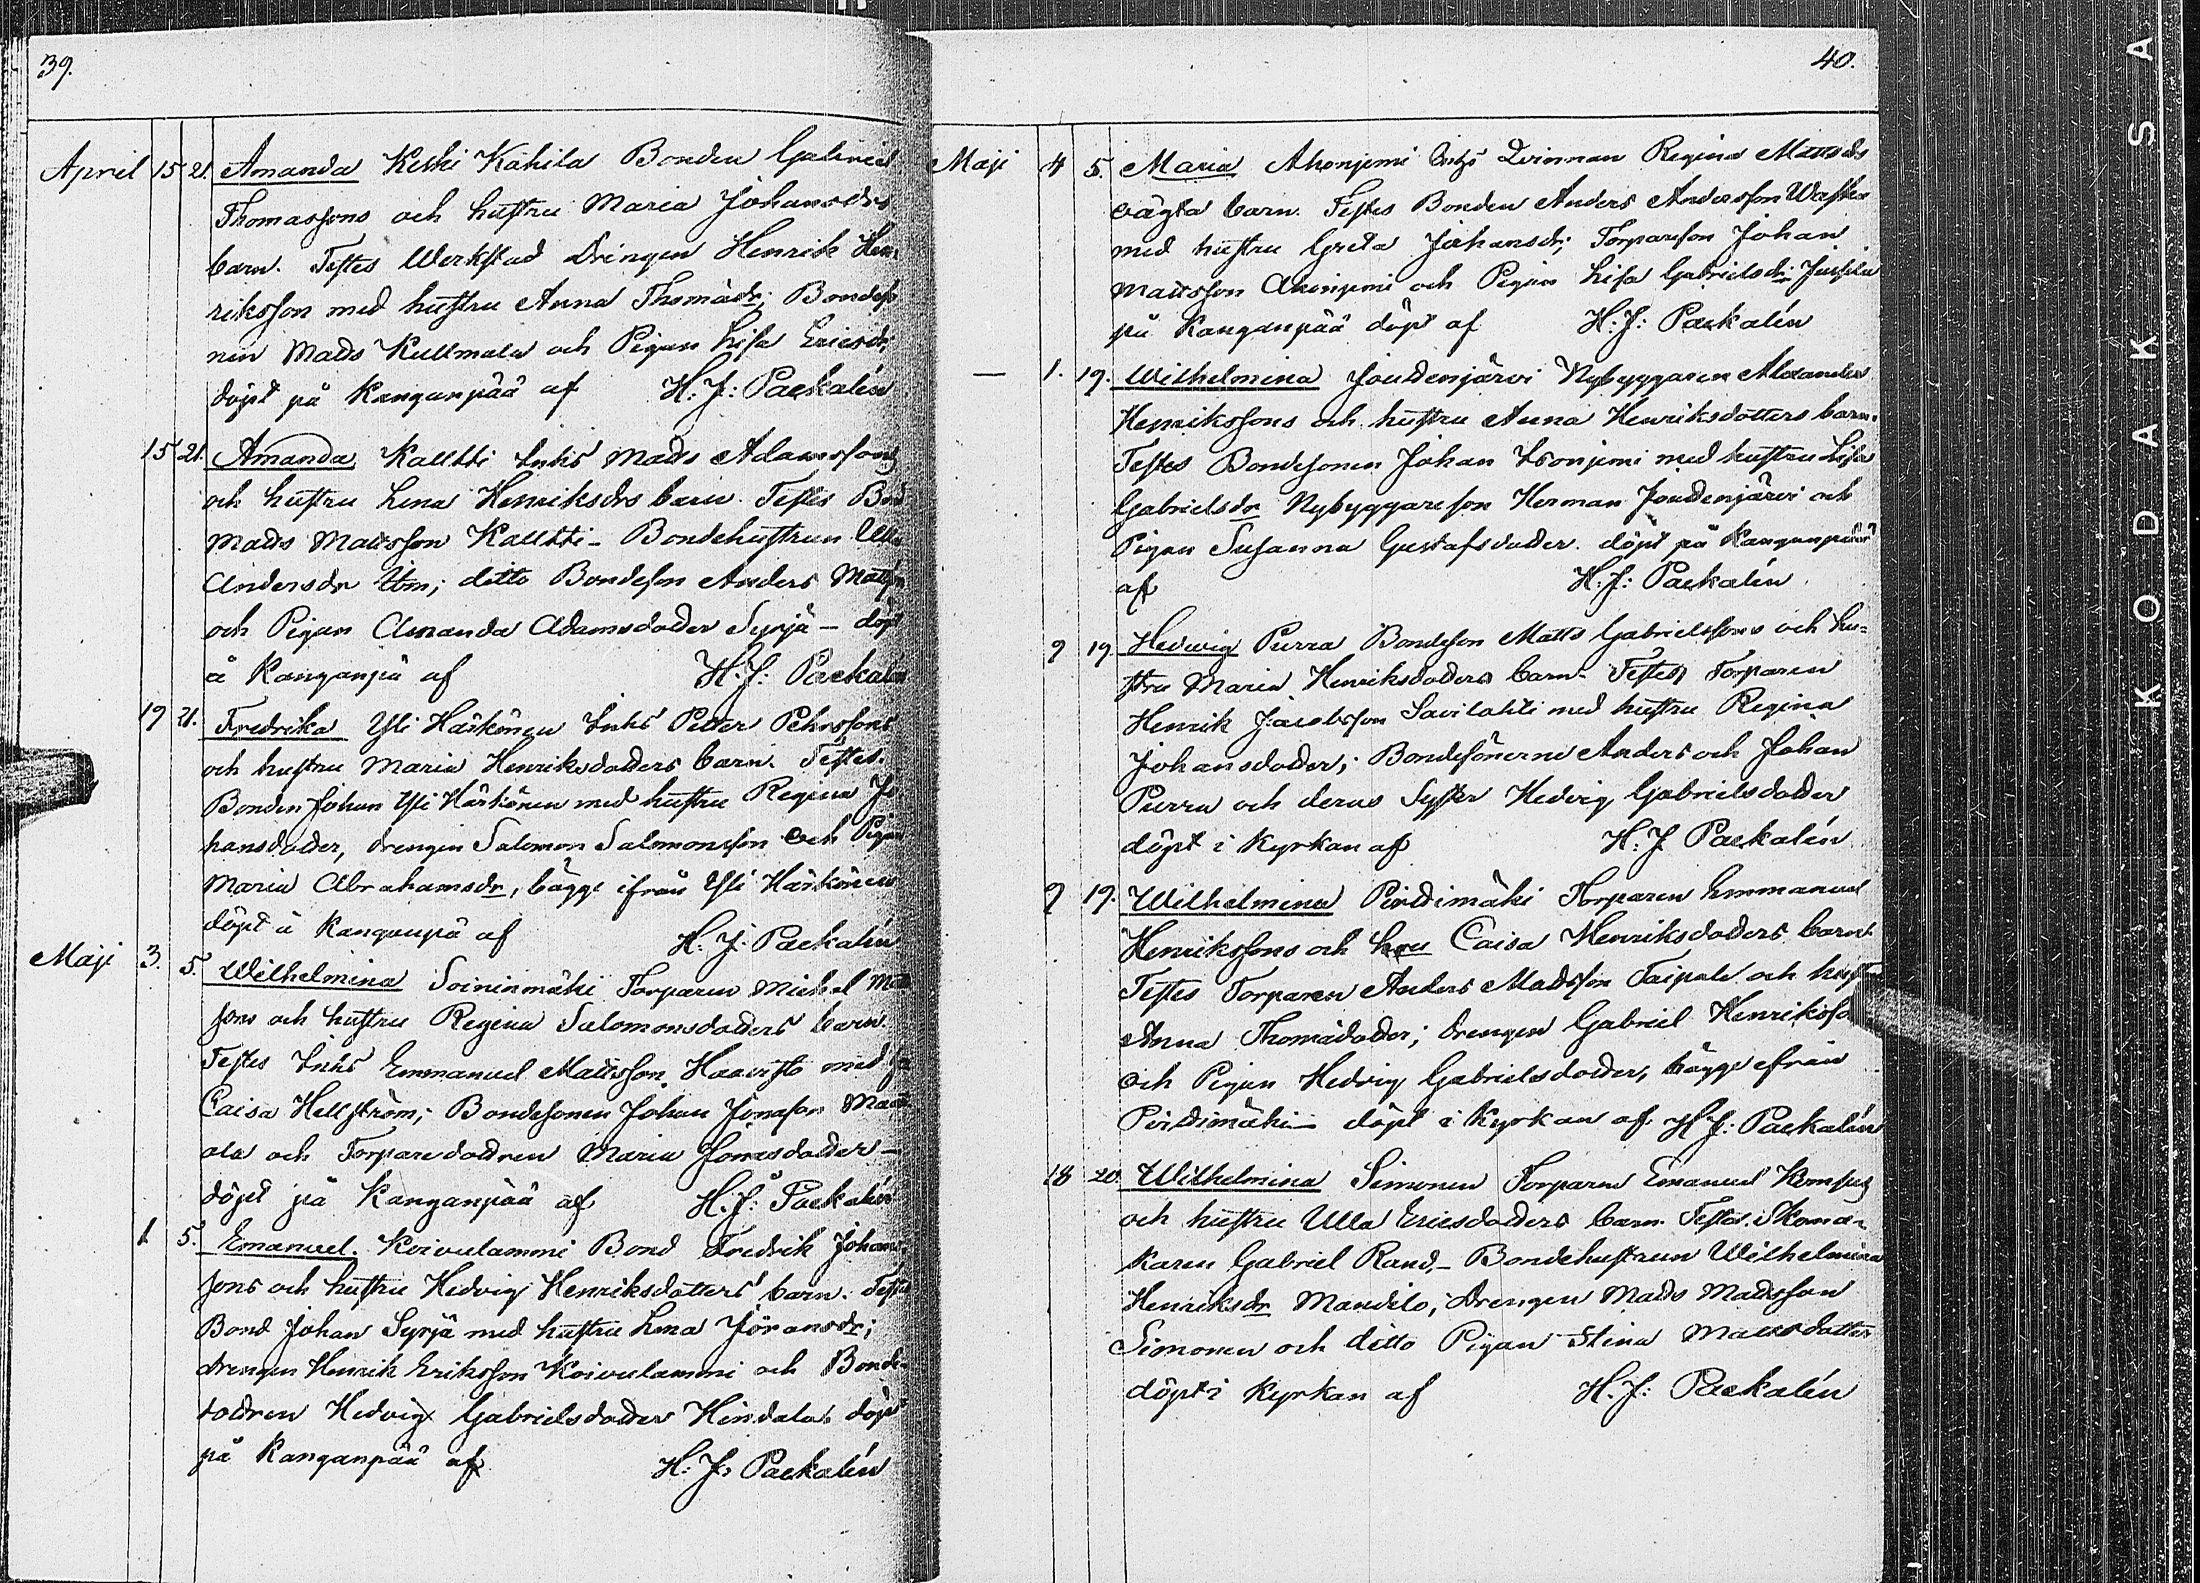 39.
April 15 21. Amanda Keski Kahila Bonden Gabriel
Thomassons och hustru Maria Johansdrs
barn. Testes Werkstad Drängen Henrik Hen-
riksson med hustru Anna Thomädr; Bondeso
nen Matts Kullmala och Pigan Lisa Ericsdr
döpt på Kanganpää af H. J: Packalén
15 21. Amanda Kallti Inhs Matts Adamssons
och hustru Lena Henriksdrs barn Testes Bond
Matts Mattsson Kallti – Bondehustrun Ulla
Andersdr ibm; ditto Bondeson Anders Mattss
och Pigan Amanda Adamsdotter Syrjä – döpt
å Kanganpä af H. J: Packalén
19 21. Fredrika Yli Härkönen Inhs Petter Pehrssons
och hustru Maria Henriksdotters barn. Testes.
Bonden Johan Yli Härkönen med hustru Regina Jo
hansdotter, drengen Salomon Salomonsson och Pigan
Maria Abrahamsdr, bägge ifrån Yli Härkönen
döpt å Kanganpä af H. J. Packalén
Maji 3. 5. Wilhelmina Soininmäki Torparen Michel Matts
sons och hustru Regina Salomonsdotters barn.
Testes Inhs Emmanuel Mattsson Haavisto med
Caisa Hellström; Bondesonen Johan Jonasson
ala och Torparedottren Maria Jonasdotter –
döpt på Kanganpää af H. J: Packalén
1 5. Emanuel. Koivulammi Bond Fredrik Johans
sons och hustru Hedvig Henriksdotters barn. Testes
Bond Johan Syrjä med hustru Lena Göransdr;
drengen Henrik Eriksson Koivulammi och Bonde-
dottren Hedvig Gabrielsdotter Hindala döpt
på Kanganpää af H: J: Packalén
40.
Maji 4 5. Maria Ahonjemi Inhs Qvinnan Regina Mattsdrs
oägta barn. Testes Bonden Anders Andersson
med hustru Greta Johansdr; Torpareson Johan
Mattsson och Pigan Lisa Gabrielsdr Jussila
på Kanganpää döpt af H: J: Packalén
— 1. 19. Wilhelmina Joudenjärvi Nybyggaren Alexander
Henrikssons och hustru Anna Henriksdotters barn.
Testes Bondesonen Johan Isonjemi med hustru Lisa
Gabrielsdr Nybyggareson Herman Joudenjärvi och
Pigan Susanna Gustafsdotter. döpt på Kanganpää
af H. J: Packalén
9 19. Hedwig Purra Bondeson Matts Gabrielssons och hu-
stru Maria Henriksdotters barn. Testes Torparen
Henrik Jacobsson Savilahti med hustru Regina
Johansdotter; Bondesönerne Anders och Johan
Purra och deras Syster Hedvig Gabrielsdotter
döpt i kyrkan af H. J Packalén
9 19. Wilhelmina Pirttimäki Torparen Emmanuel
Henrikssons och hru Caisa Henriksdotters barn.
Testes Torparen Anders Mattsson Taipale och hustru
Anna Thomädotter; drengen Gabriel Henriksson
och Pigan Hedvig Gabrielsdotter, bägge ifrån
Pirttimäki – döpt i kyrkan af H J: Packalén
18 20. Wilhelmina Simonen Torparen Emanuel
och hustru Ulla Ericsdotters barn. Testes. Skoma-
karen Gabriel Rand, – Bondehustrun Wilhelmina
Henriksdr Mandelo; drengen Matts Mattsson
Simonen och ditto Pigan Stina Mattsdotter
döpt i kyrkan af H. J: Packalén
KODAK SA